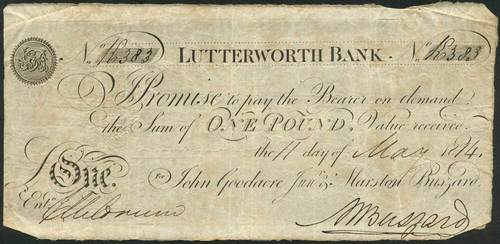 No. K383 LUTTERWORTH BANK. No. K383
I Promise to pay the Bearer on demand
the Sum of ONE POUND, Value received
the 11 day of May 1814.
£ One. For John Goodacre Junr. & Marston Buszard.
Entd.
MBuszard